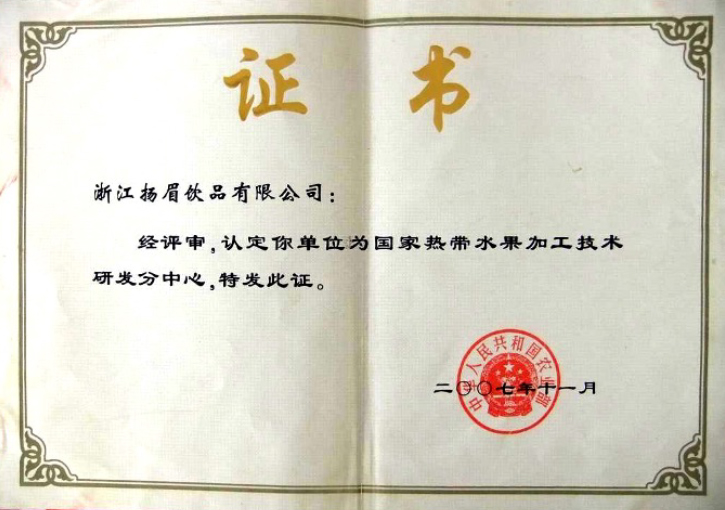 证书
浙江扬眉饮品有限公司：
经评审，认定你单位为国家热带水果加工技术
研发分中心，特发此证。
中华人民共和国农业部
二〇〇七年十一月